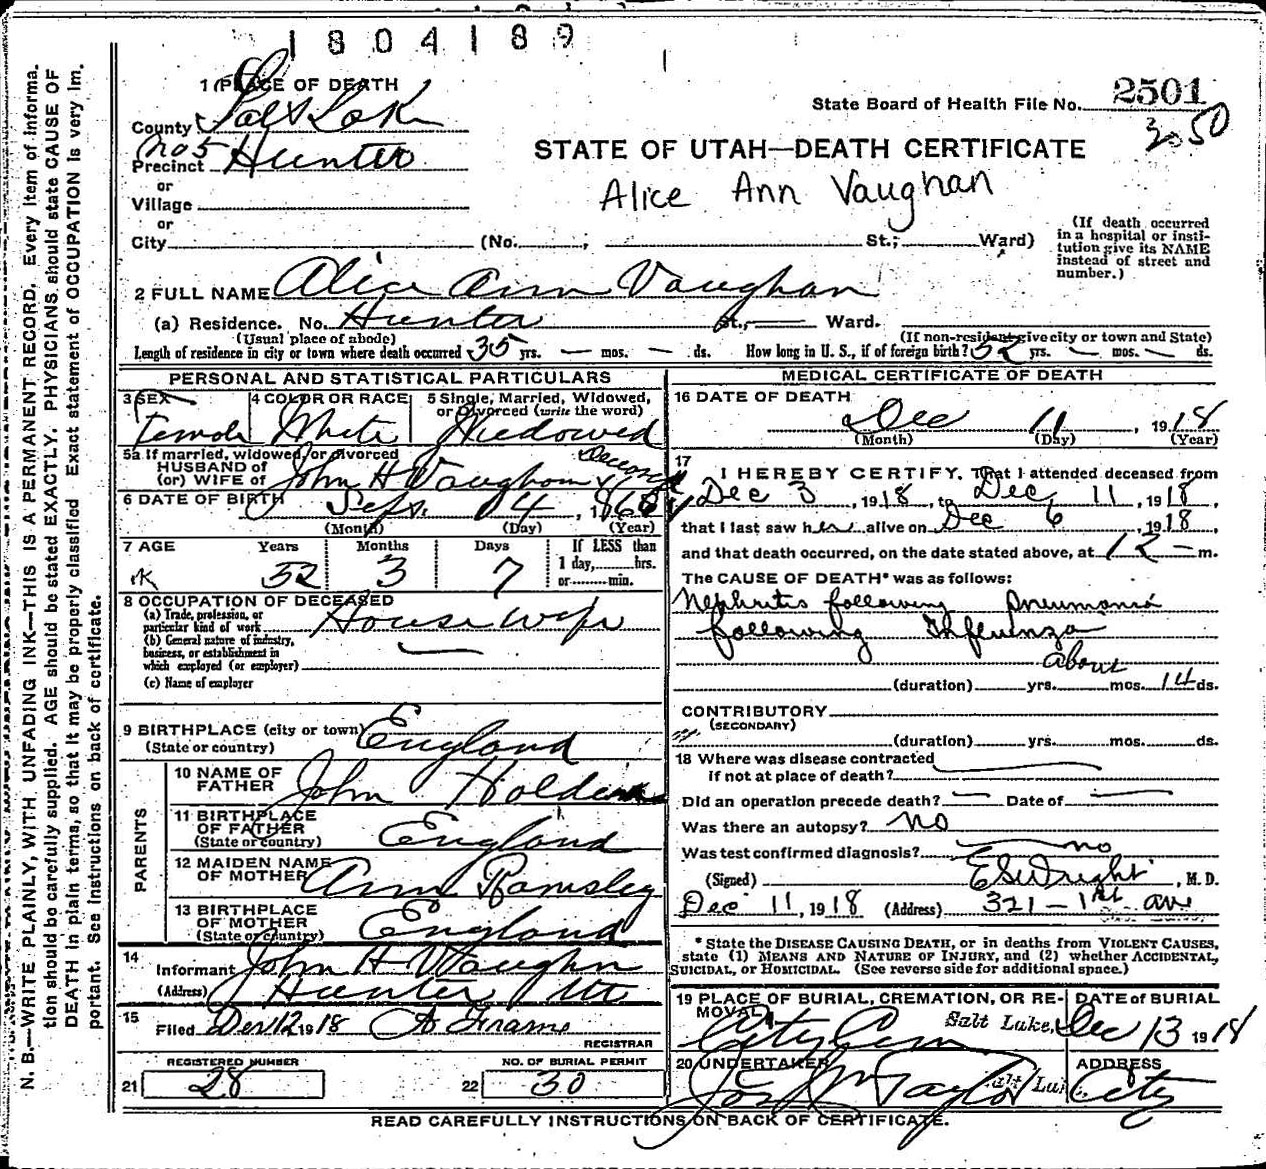 1804189
1 PLACE OF DEATH
State Board of Health File No. 2501
County Salt Lake
3050
No 5
Precinct Hunter
STATE OF UTAH—DEATH CERTIFICATE
or
Alice Ann Vaughan
Village
or
City (No. ; St.; Ward)
(If death occurred in a hospital or insti-
tution give its NAME
instead of street and
number.)
2 FULL NAME Alice Ann Vaughan
(a) Residence. No. Hunter St., Ward.
(Usual place of abode) (If non-resident give city or town and State)
Length of residence in city or town where death occurred 35 yrs. — mos. — ds. How long in U. S., if of foreign birth? 52 yrs. — mos. — ds.
PERSONAL AND STATISTICAL PARTICULARS
3 SEX 4 COLOR OR RACE 5 Single, Married, Widowed,
or Divorced (write the word)
Female White Widowed
5a If married, widowed, or divorced
HUSBAND of
(or) WIFE of John H Vaughan
6 DATE OF BIRTH Sept. 04, 186
(Month) (Day) (Year)
7 AGE Years Months Days If LESS than
1 day, hrs.
or min.
52 3 7
8 OCCUPATION OF DECEASED
(a) Trade, profession, or
particular kind of work House wife
(b) General nature of industry,
business, or establishment in
which employed (or employer) —
(c) Name of employer
9 BIRTHPLACE (city or town)
(State or country) England
PARENTS
10 NAME OF
FATHER John Holden
11 BIRTHPLACE
OF FATHER
(State or country) England
12 MAIDEN NAME
OF MOTHER Ann Ramsley
13 BIRTHPLACE
OF MOTHER
(State or country) England
14
Informant John H Vaughn
(Address) Hunter Ut
15
Filed Dec 12 1918
REGISTRAR
REGISTERED NUMBER NO. OF BURIAL PERMIT
21 28 22 30
MEDICAL CERTIFICATE OF DEATH
16 DATE OF DEATH
Dec 11, 1918
(Month) (Day) (Year)
17
I HEREBY CERTIFY, That I attended deceased from
Dec 3, 1918, to Dec, 11, 1918,
that I last saw her alive on Dec 6, 1918,
and that death occurred, on the date stated above, at 12 — m.
The CAUSE OF DEATH* was as follows:
Nephritis following Pneumonia
following Influenza
about
(duration) yrs. mos. 14 ds.
CONTRIBUTORY
(SECONDARY)
(duration) yrs. mos. ds.
18 Where was disease contracted
if not at place of death?
Did an operation precede death? — Date of —
Was there an autopsy? No
Was test confirmed diagnosis? no
(Signed) E S Wright, M. D.
Dec 11, 1918 (Address) 321 — 1st ave
* State the DISEASE CAUSING DEATH, or in deaths from VIOLENT CAUSES,
state (1) MEANS AND NATURE OF INJURY, and (2) whether ACCIDENTAL,
SUICIDAL, or HOMICIDAL. (See reverse side for additional space.)
19 PLACE OF BURIAL, CREMATION, OR RE-
MOVAL DATE of BURIAL
City Cem Salt Lake, Dec 13 1918
20 UNDERTAKER ADDRESS
Jos Wm Taylor Salt Lake City
READ CAREFULLY INSTRUCTIONS ON BACK OF CERTIFICATE.
N. B.—WRITE PLAINLY, WITH UNFADING INK—THIS IS A PERMANENT RECORD. Every item of informa-
tion should be carefully supplied. AGE should be stated EXACTLY. PHYSICIANS should state CAUSE OF
DEATH in plain terms, so that it may be properly classified. Exact statement of OCCUPATION is very im-
portant. See instructions on back of certificate.